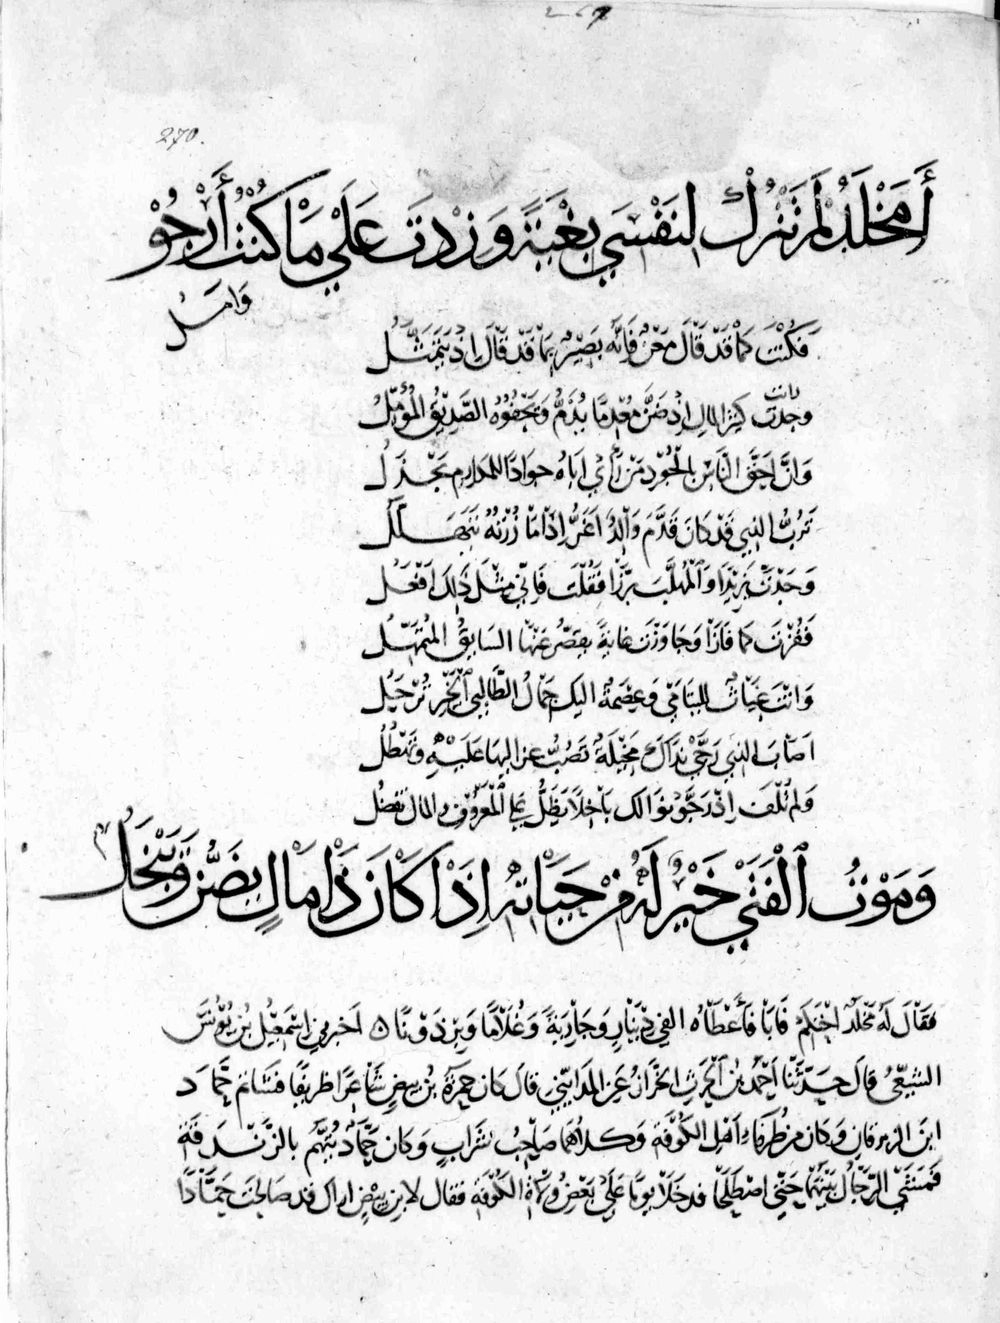 269
270.
أَمَخْلَدُ لَمْ تَتْرُكْ لِنَفْسِي بُغْيَةً وَزِدْتَ عَلَى مَا كُنْتُ أَرْجُوْ
وَامُلُ
فَكُنْتَ كَمَا قَدْ قَالَ مَعْنٌ فَإِنَّهُ بَصِيْرٌ بِمَا قَدْ قَالَ اِذْ يَتَمَثَّلُ
وَجَدْتُ كثيرَ المالِ اِذ ضَنَّ مُعْدِمًا يُذَمُّ وَيَجْفُوْهُ الصَّدِيْقُ المُؤَمِّلُ
وَانَّ اَحَقَّ النَّاسِ بِالْجُوْدِ مَنْ رَأَى اَبَاهُ جوادًا للمكارم يُجْزِلُ
تَرُبُّ الذِي قَدْ كَانَ قَدَّمَ وَالِدٌ اَغَرُّ اِذَا مَا زُرْتَهُ يَتَهَلَّلُ
وَجَدْتَ يَزِيْدًا وَالْمُهَلَّبَ بَرَّزَا فَقُلْتَ فَاِنِّي مِثْلَ ذٰلِكَ اَفْعَلُ
فَفُزْتَ كَمَا فَازَا وَجَاوَزْتَ غايَةً يُقَصِّرُ عَنْهَا السَابِقُ المُتَمَهِّلُ
وَانْتَ غِيَاثٌ لِلْيَتَامَى وَعِصْمَةٌ اليك جِمَالُ الطَّالِبِي الْخَيْرِ تُرْحَلُ
اَصَابَ الذي رَجَّى نَدَاكَ مَخِيْلَةً تَصُبُّ عزاليها عَلَيْهِ وَتَهْطِلُ
وَلم تُلْفَ اِذْ رَجَّوْا نَوَالك بَاخِلًا تَظُنُّ على الْمَعْرُوْفِ والمال تفضل
وَمَوْتُ الْفَتَى خَيْرٌ لَهُ مِنْ حَيَاتِهِ اِذَا كَانَ ذَا مَالٍ يَضَنُّ وَيَبْخَلُ
فَقَالَ لَهُ مَخْلَدٌ احْتَكِمْ فَابَا فَأَعْطَاهُ الفي دِيْنَارٍ وَجَارِيَةً وَغُلَامًا وَبِرْذَوْنًا ۞ اخبرني اِسْمَعِيْلُ بْنُ يُوْنُسَ
الشِيْعِيُّ قَالَ حَدَّثَنَا اَحْمَدُ بْنُ الحَرِثِ الخَرَّازُ عَنِ المَدَايِنِيِّ قالَ كانَ حَمْزَةُ بْنُ بِيْضٍ شَاعِرًا ظريفًا فَشَاتَمَ حَمَّادَ
ابنَ الزبرقانِ وَكانَ من ظُرَفَاءِ أَهْلِ الكُوْفَةِ وَكلاهُمَا صَاحِبُ شَرَابٍ وَكَانَ حَمَّادٌ يُتَّهَمُ بالزَّنْدَقَةِ
فَمَشَى الرِّجَالُ بَيْنَهُمَا حَتَّى اصْطَلَحَا فدخَلَا يومًا عَلَى بَعْضِ وُلَاةِ الكُوْفَةِ فقال لابن بِيْضٍ اراك قد صَالحْتَ حَمَّادًا